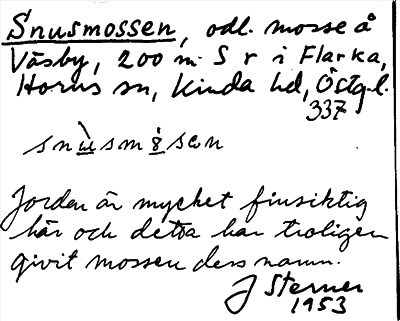 Snusmossen, odl. mosse å
Väsby, 200 m S r i Flarka,
Horns sn, Kinda hd, Östg.l.
337
snùsmå̀sen
Jorden är mycket finsiktig
här och detta har troligen
givit mossen dess namn.
J Sterner
1953